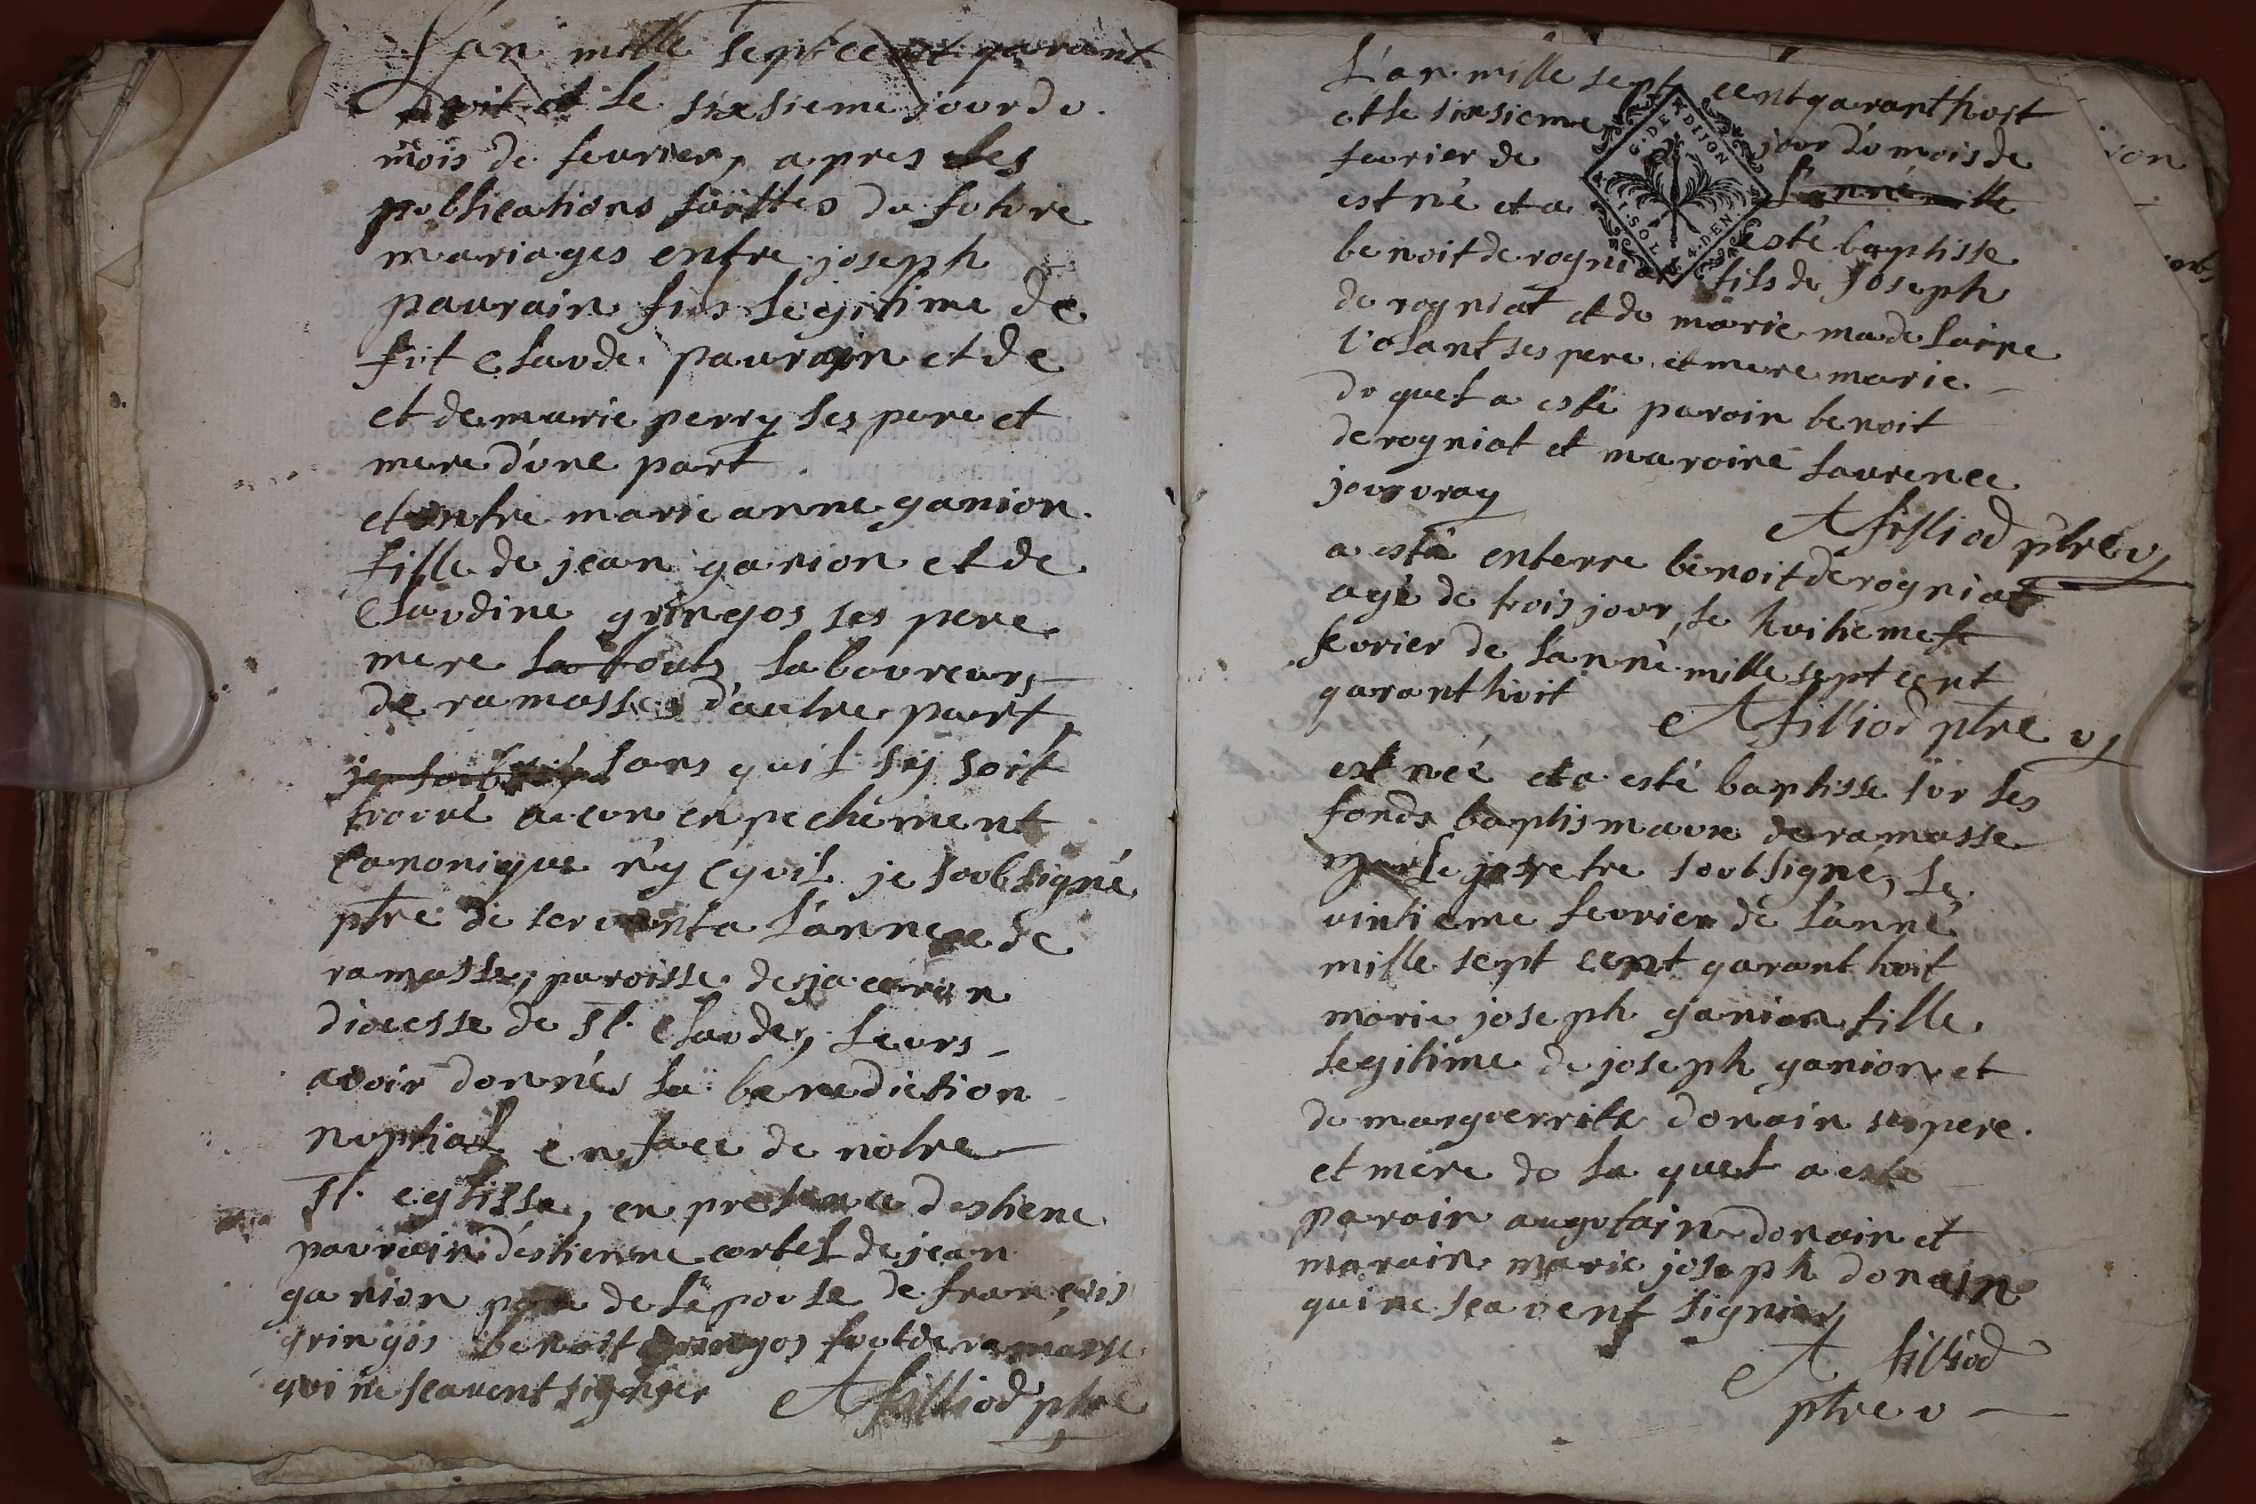 L'an mille sept cent qarant
huit et le sixsieme jour du
mois de feurier, apres les
publications faittes du future
mariages entre joseph
paurain fils legitime de
fût Claude paurain et de
et de marie perry ses pere et
mere d'une part
et entre marie anne ganion
fille de jean ganion et de
Claudine gringos ses pere
mere laboureurs
de ramasse d'autre part,
sans quil sy soit
trouué aucun enpechement
canonique n'y Cyuil je soubsigné
ptre de seruanta l'annexe de
ramasse, paroisse de ja
diocesse de St. Claude, leurs
auoir donnés la benediction
nuptial en face de notre
St. eglisse, en presence destiene
paurain destienne cortel de jean
ganion de l'epouse de françois
gringos benoit gringos tout de ramasse
qui ne scauent signger A filliod ptre
L'an mille sept cent qarant huit
et le sixsieme jour du mois de
feurier de l'anné mille
est né et a esté baptisse
benoit de rogniat fils de Joseph
de rogniat et de marie madelaine
volant ses pere et mere marie
du quel a esté parain benoit
de rogniat et maraine laurence
jouvray
A filliod ptre v
a esté enterre benoit de rogniat
agé de trois jour, le huitieme
feurier de l'anné mille sept cent
qarant huit
A filliod ptre v
est néé et a esté baptisse sur les
fonds baptismaux de ramasse
par le pretre soubsigné, le
vintieme feurier de l'anné
mille sept cent qarant huit
marie joseph ganion fille
legitime de joseph ganion et
de marguerrite donain ses pere
et mere de la quel a este
parain augutain donain et
marain marie joseph donain
qui ne scavent signier
A filliod
ptre v
G. DE DIJON
4. DEN